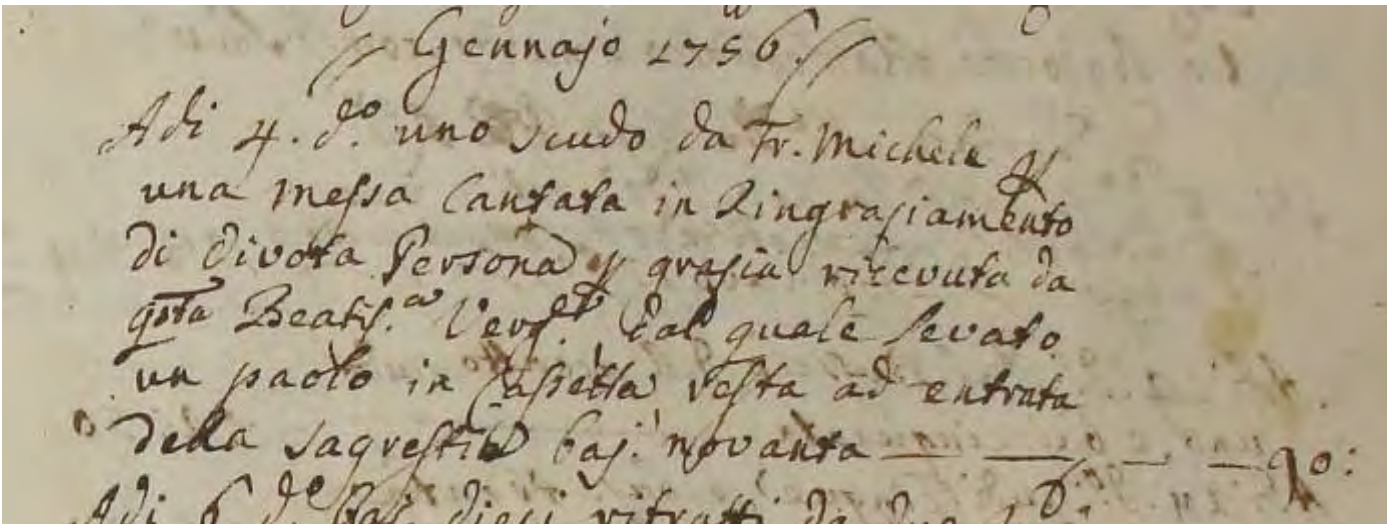 // Gennajo 1756 //
Adi 4. do. uno scudo da Fr. Michele p
una messa Cantata in Ringraziamento
di divota Persona p grazia ricevuta da
qsta Beatis.a Verg.e, dal quale levato
un paolo in Cassetta resta ad entrata
della sagrestia baj. novanta — — — — 90:
Adi 6. do baj. dieci ritratti da due